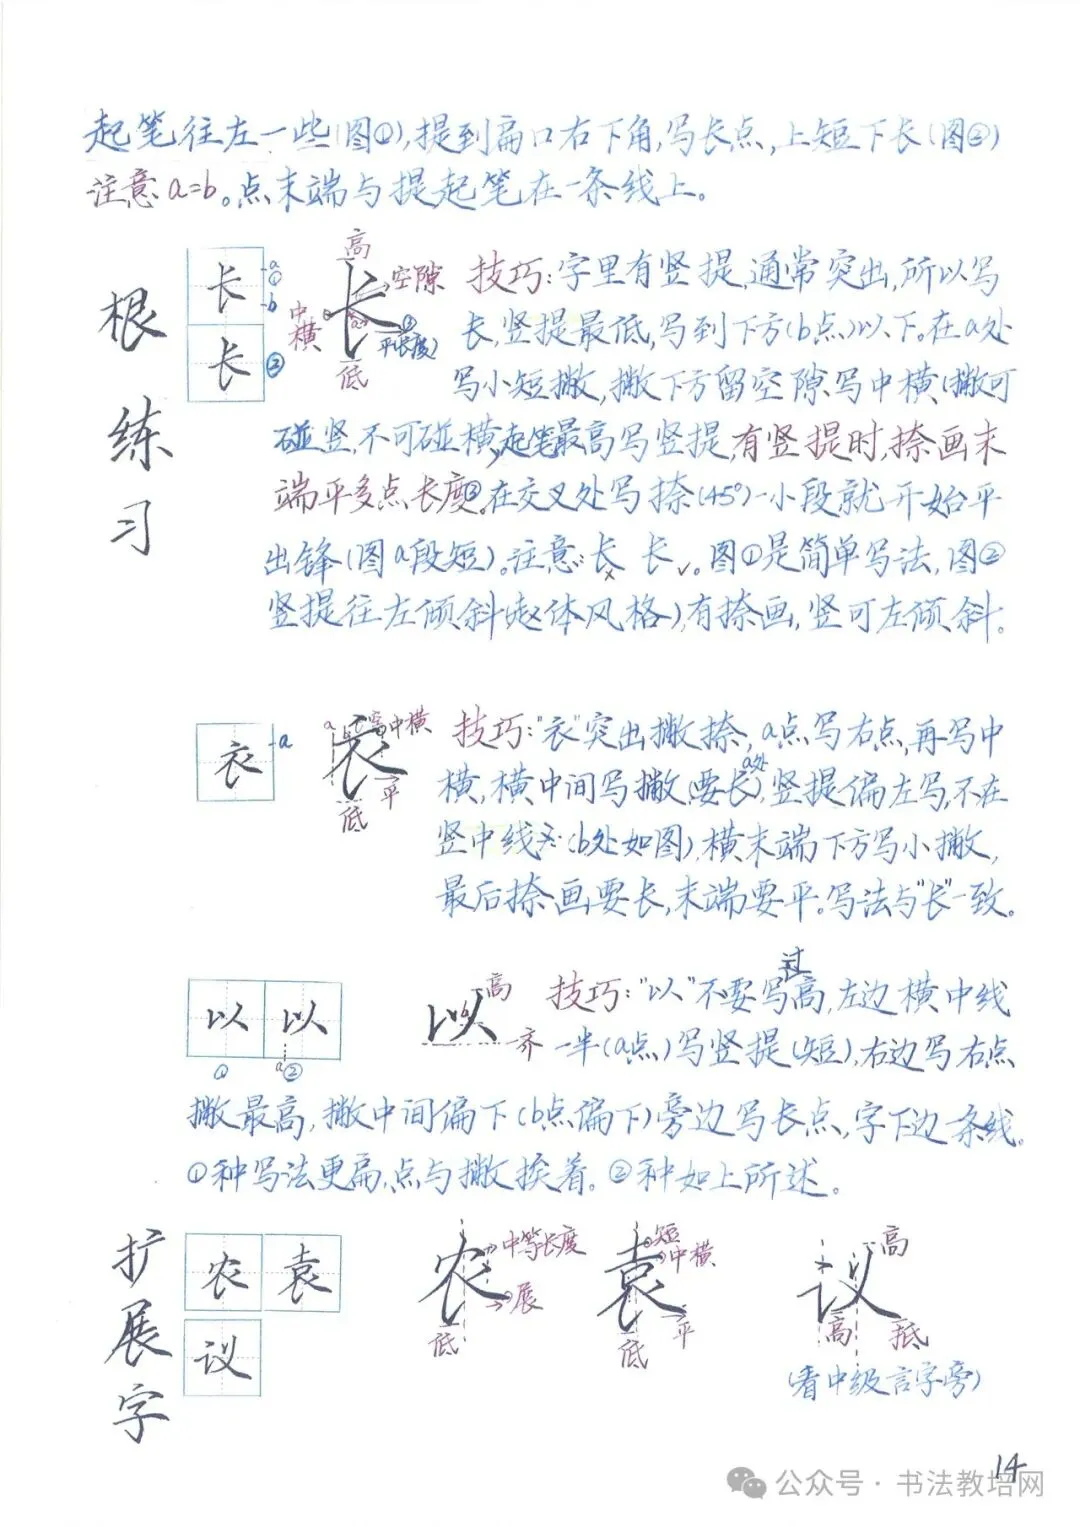 起笔往左一些(图①),提到扁口右下角,写长点,上短下长(图②)
注意a=b。点末端与提起笔在一条线上。
根练习
长
长
a
①
b
②
高
空隙
中横
长
③
平(长度)
低
技巧:字里有竖提,通常突出,所以写
长,竖提最低,写到下方(b点)以下。在a处
写小短撇,撇下方留空隙写中横(撇可
碰竖,不可碰横,起笔最高写竖提,有竖提时,捺画末
端平多点长度③,在交叉处写捺(45°)一小段就开始平
出锋(图a段短)。注意:长× 长✓。图①是简单写法,图②
竖提往左倾斜(赵体风格),有捺画,竖可左倾斜。
衣
a
衣
a
高中横
平
低
技巧:"衣"突出撇捺,a点写右点,再写中
横,横中间写撇(要长),a处竖提偏左写,不在
竖中线(b处如图),横末端下方写小撇,
最后捺画要长,末端要平。写法与"长"一致。
以
以
①
a
②
以
高
齐
技巧:"以"不要写过高,左边横中线
一半(a点)写竖提(短),右边写右点
撇最高,撇中间偏下(b点偏下)旁边写长点,字下边一条线。
①种写法更扁,点与撇挨着。②种如上所述。
扩展字
农
袁
议
农
中等长度
展
低
袁
短
中横
平
低
议
高
高
抵
(看中级言字旁)
14
公众号·书法教培网